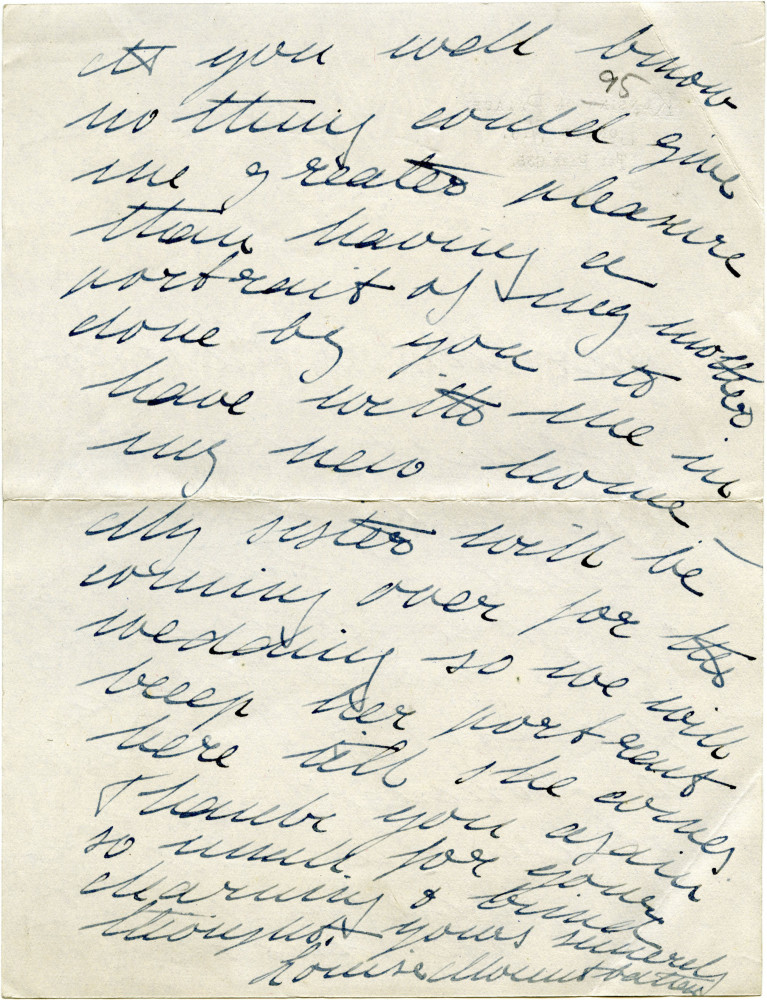 As you well know
95
nothing could give
me greater pleasure
than having a
portrait of my mother
done by you to
have with me in
my new home –
My sister will be
coming over for the
wedding so we will
keep her portrait
here till she comes
Thank you again
so much for your
charming & kind
thought yours sincerely
Louise Mountbatten